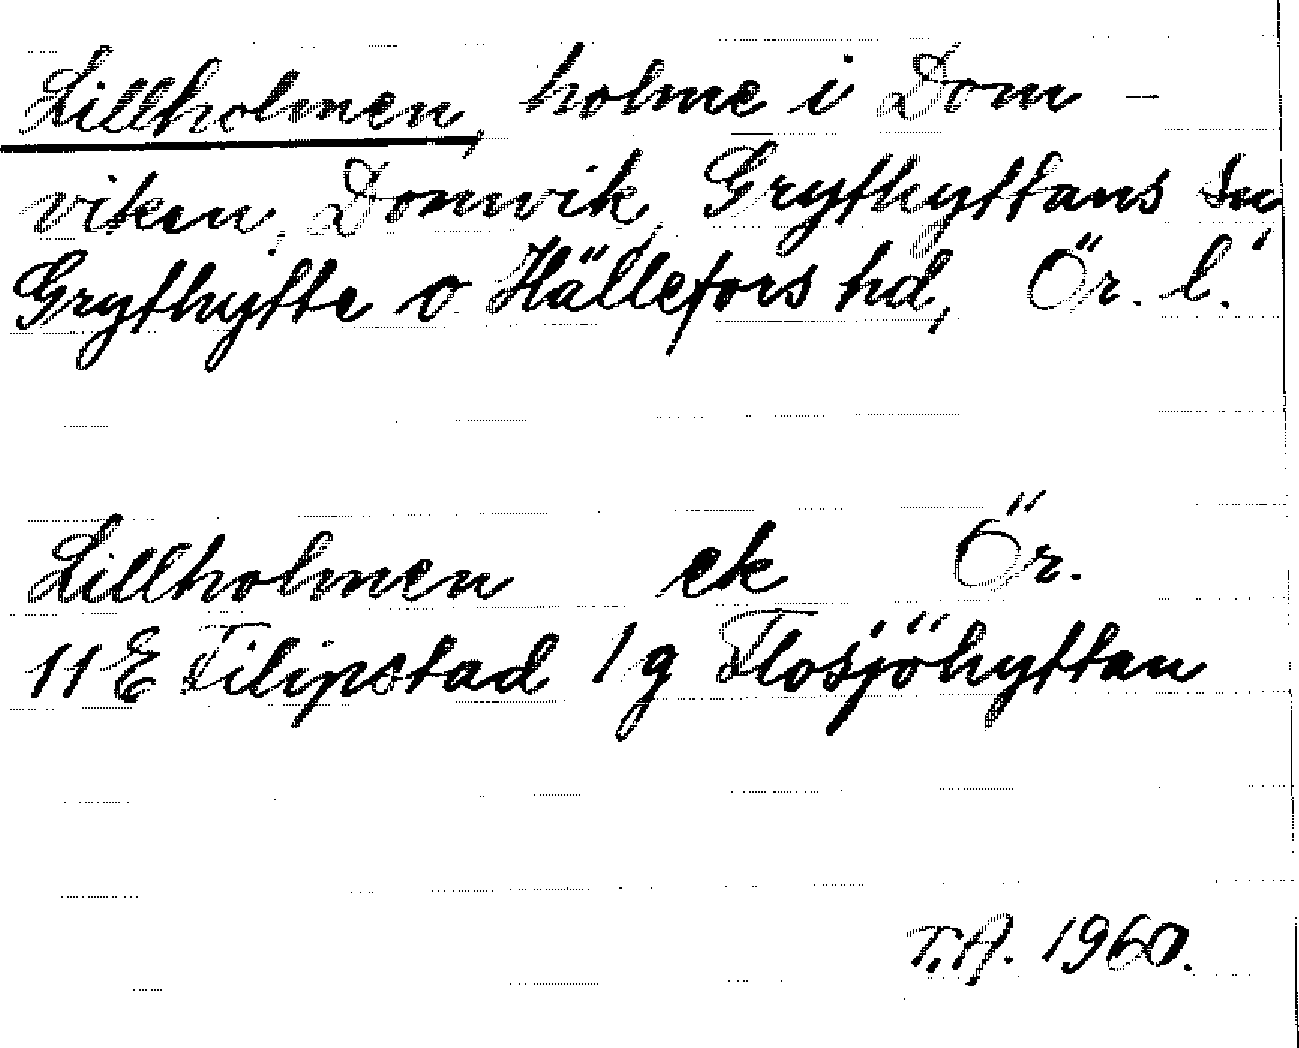 Lillholmen, holme i Dom-
viken, Domvik, Grythyttans sn,
Grythytte o Hällefors hd, Ör. l.
Lillholmen ek Ör.
11E Filipstad 1g Flosjöhyttan
T.A. 1960.